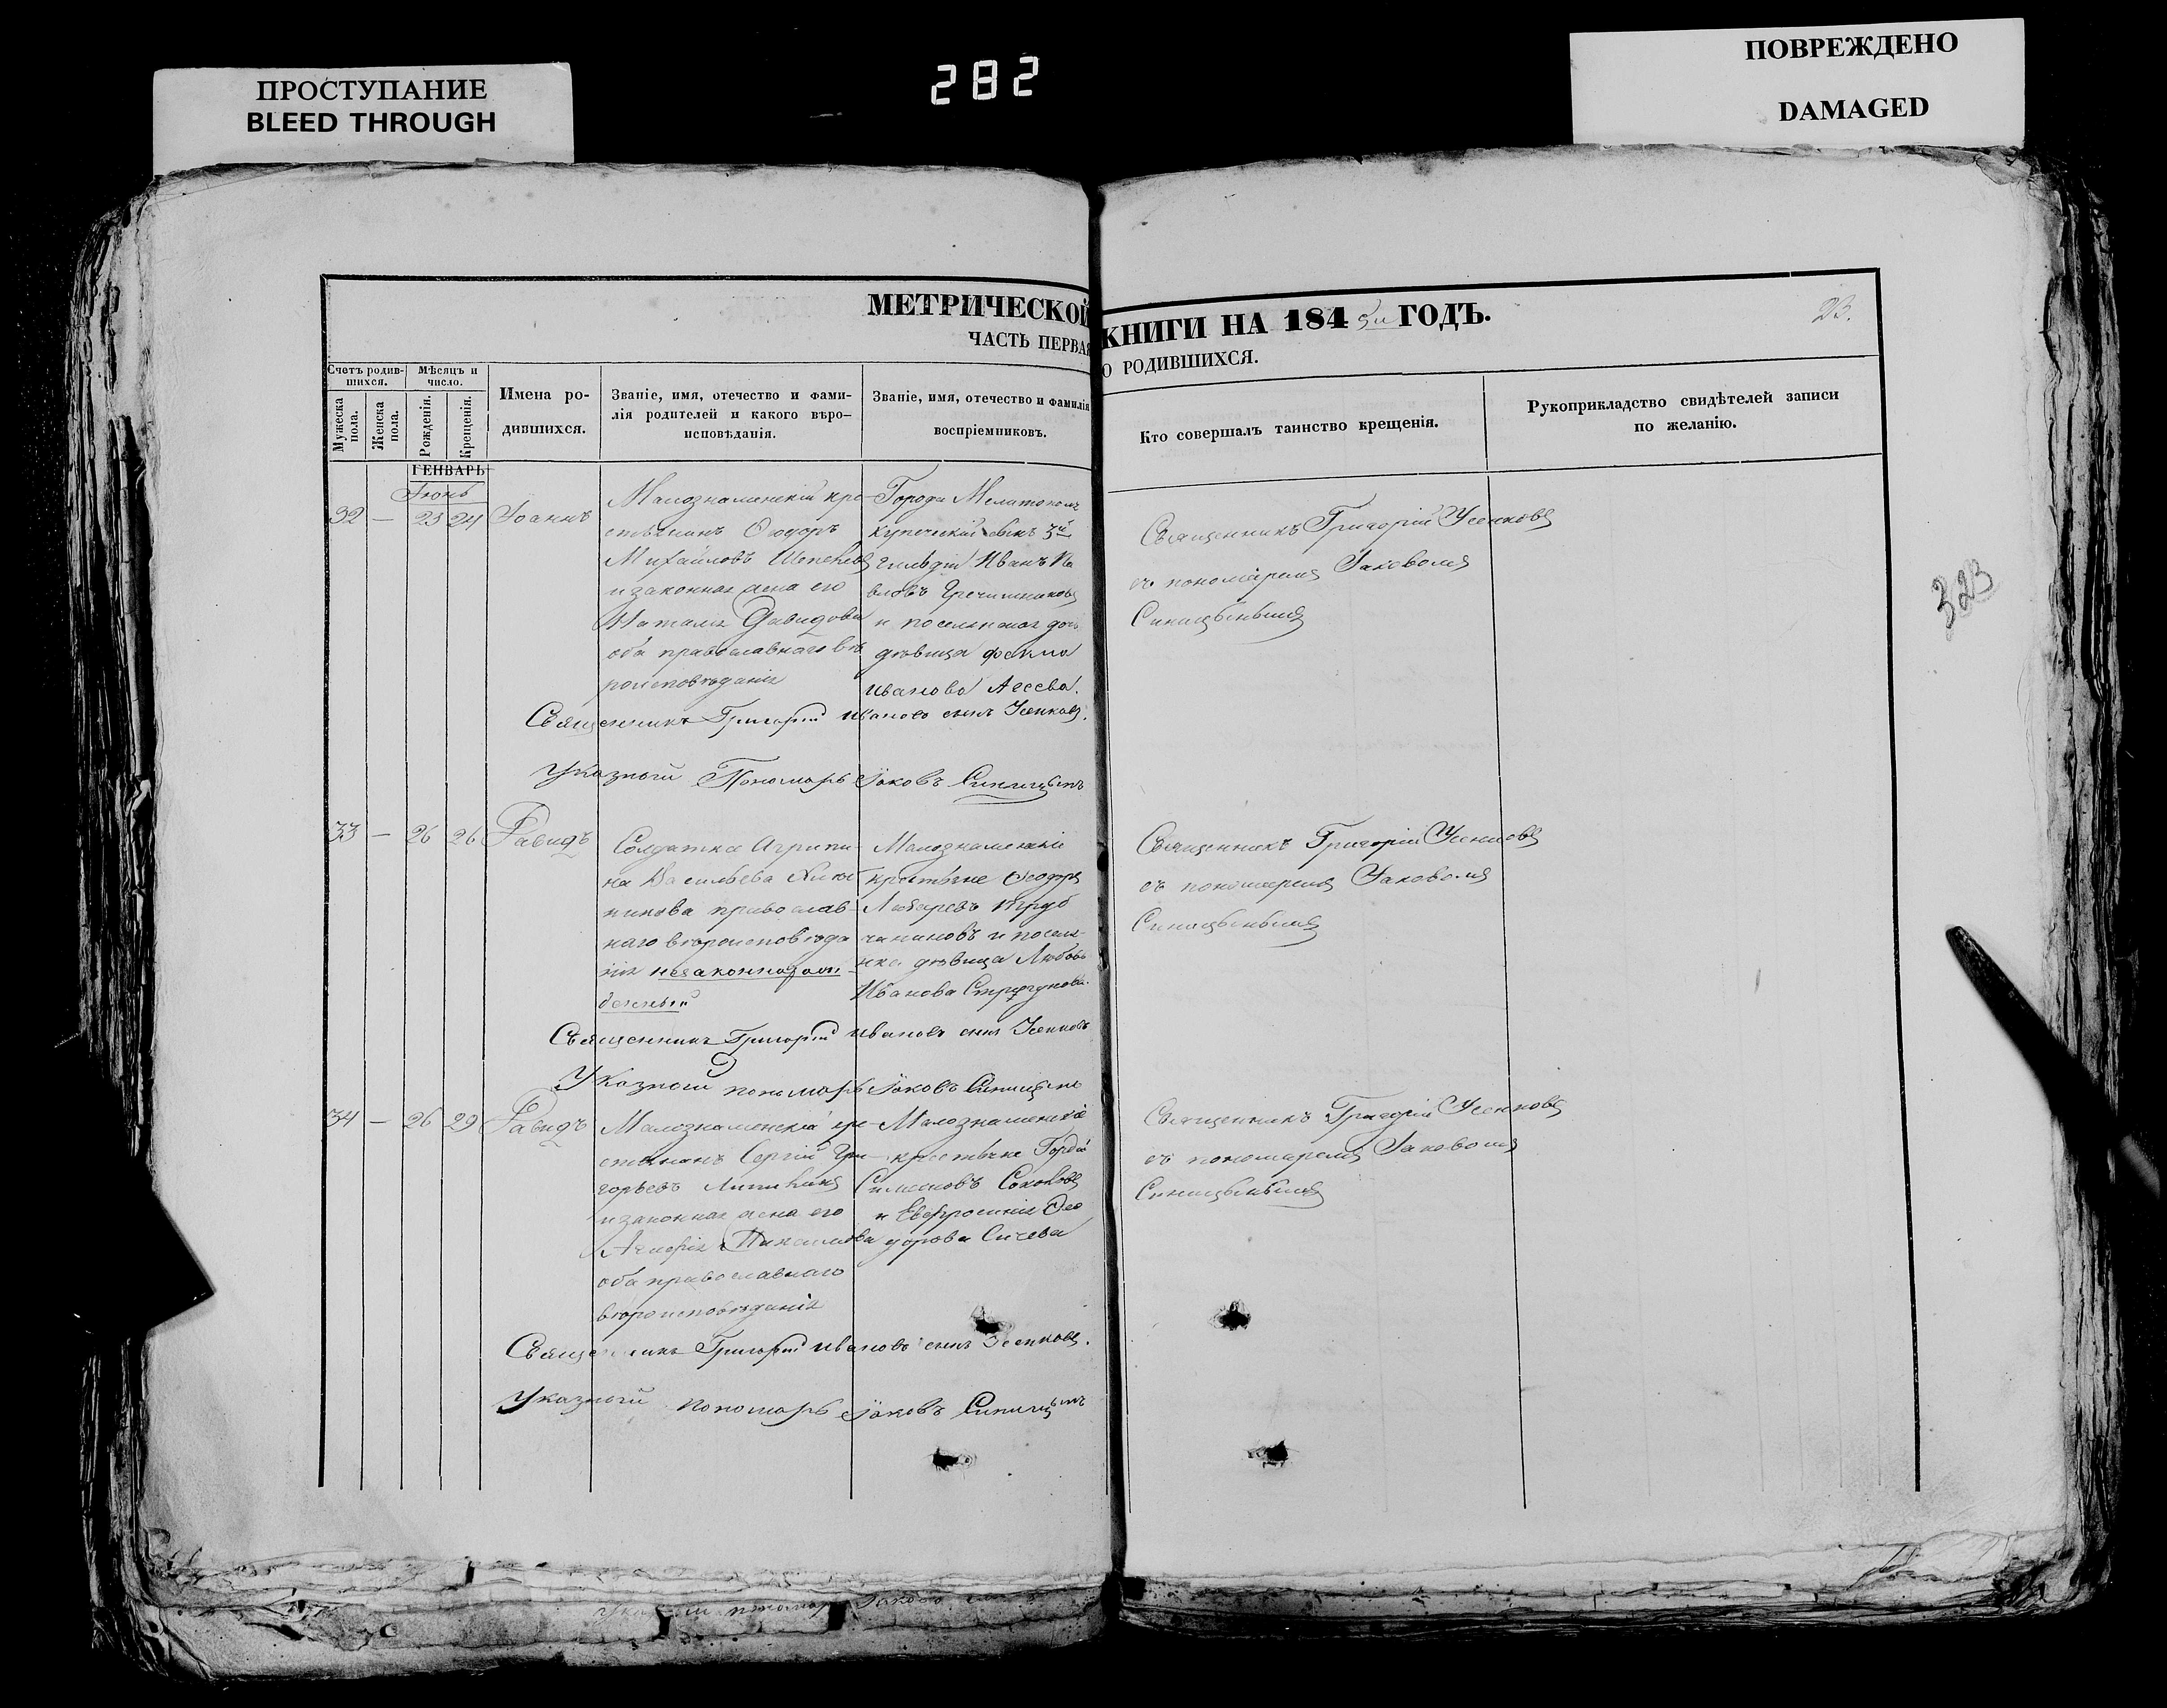 ПРОСТУПАНИЕ
BLEED THROUGH
282
ПОВРЕЖДЕНО
DAMAGED
МЕТРИЧЕСКОЙ КНИГИ НА 1845й ГОДЪ.
23.
ЧАСТЬ ПЕРВАЯ О РОДИВШИХСЯ.
Счетъ родив-
шихся.
Мѣсяцъ и
число.
Мужеска пола.
Женска пола.
Рожденія.
Крещенія.
Имена ро-
дившихся.
Званіе, имя, отечество и фами-
лія родителей и какого вѣро-
исповѣданія.
Званіе, имя, отечество и фамилія
воспріемниковъ.
Кто совершалъ таинство крещенія.
Рукоприкладство свидѣтелей записи
по желанію.
ГЕНВАРЬ
Іюнь
32 — 23 24 Іоаннъ
Малознаменскій кре-
стьянинъ Ѳеодоръ
Михайловъ
и законная жена его
Наталія Давидова
оба православнаго вѣ
роисповѣданія
Города Мелитополя
купеческій сынъ 3й
гильдіи Иванъ Па
вловъ Гречишниковъ
и поселянская дочь
дѣвица
Иванова Агеева.
Священникъ Григорій Усенковъ
съ пономаремъ Іаковомъ
Синицынымъ
323
Священникъ Григорій Ивановъ сынъ Усенковъ.
Указный Пономарь Іаковъ Синицынъ
33 — 26 26 Давидъ
Солдатка Агрипи-
на Васильева
православ-
наго вѣроисповѣда
нія незаконнорож
денный
Малознаменскіе
крестьяне Ѳеодоръ
и поселя-
нка дѣвица Любовь
Иванова
Священникъ Григорій Усенковъ
съ пономаремъ Іаковомъ
Синицынымъ
Священникъ Григорій Ивановъ сынъ Усенковъ
Указный пономарь Іаковъ Синицынъ
34 — 26 29 Давидъ
Малознаменскій кре-
стьянинъ Сергій Гри-
горьевъ
и законная жена его
оба православнаго
вѣроисповѣданія
Малознаменскіе
крестьяне Гордій
Симеоновъ
и Евфросинія Ѳео
дорова Сичева
Священникъ Григорій Усенковъ
съ пономаремъ Іаковомъ
Синицынымъ
Священникъ Григорій Ивановъ сынъ Усенковъ.
Указный пономарь Іаковъ Синицынъ